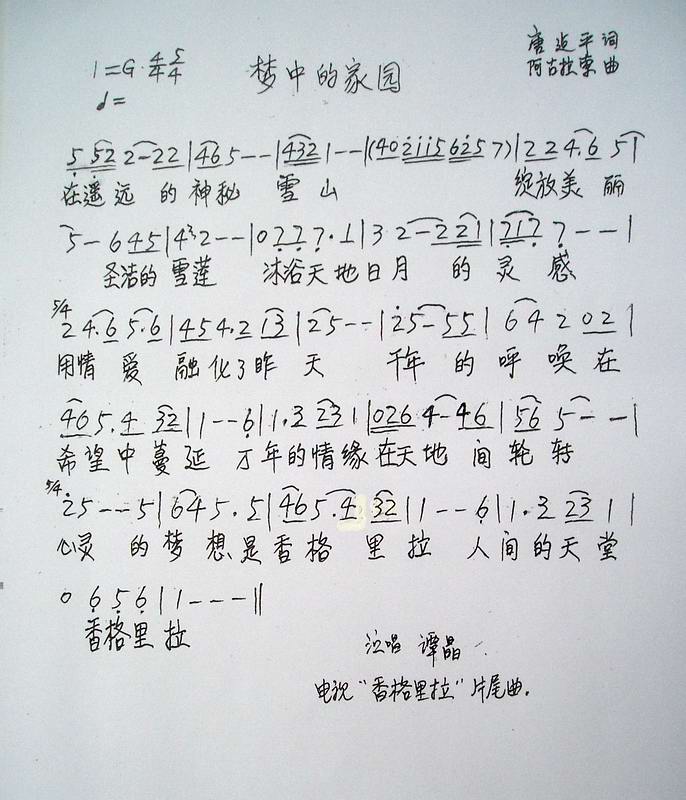 1=G 4/4 5/4
梦中的家园
唐 平 词
阿古拉泰 曲
♩=
5 52 2-22|465--|4321--|(402115625 7)|22 4.6 51|
在遥远 的神秘 雪 山 绽放美 丽
5-6 45|4³2--|0777.1|3 2-221|7177--|
圣洁的 雪莲 沐浴天地日月 的 灵 感
5/4 2 4.6 5.6|454.2 13|25--|25-55|6 4 2 02|
用情 爱 融化了昨 天 千年 的 呼 唤 在
465.4 32|1--6|1.3 23 1|026 4-46|56 5--|
希望中蔓延 万年的情缘在天地 间 轮 转
5/4 25--5|645.5|465.4 32|1--6|1.3 23 1|
心灵 的 梦 想是香格 里 拉 人间的天堂
0 656|1---||
香格里 拉
演唱 谭晶
电视“香格里拉”片尾曲.